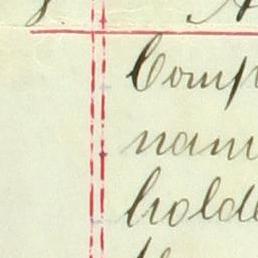 Comp
nam
holde